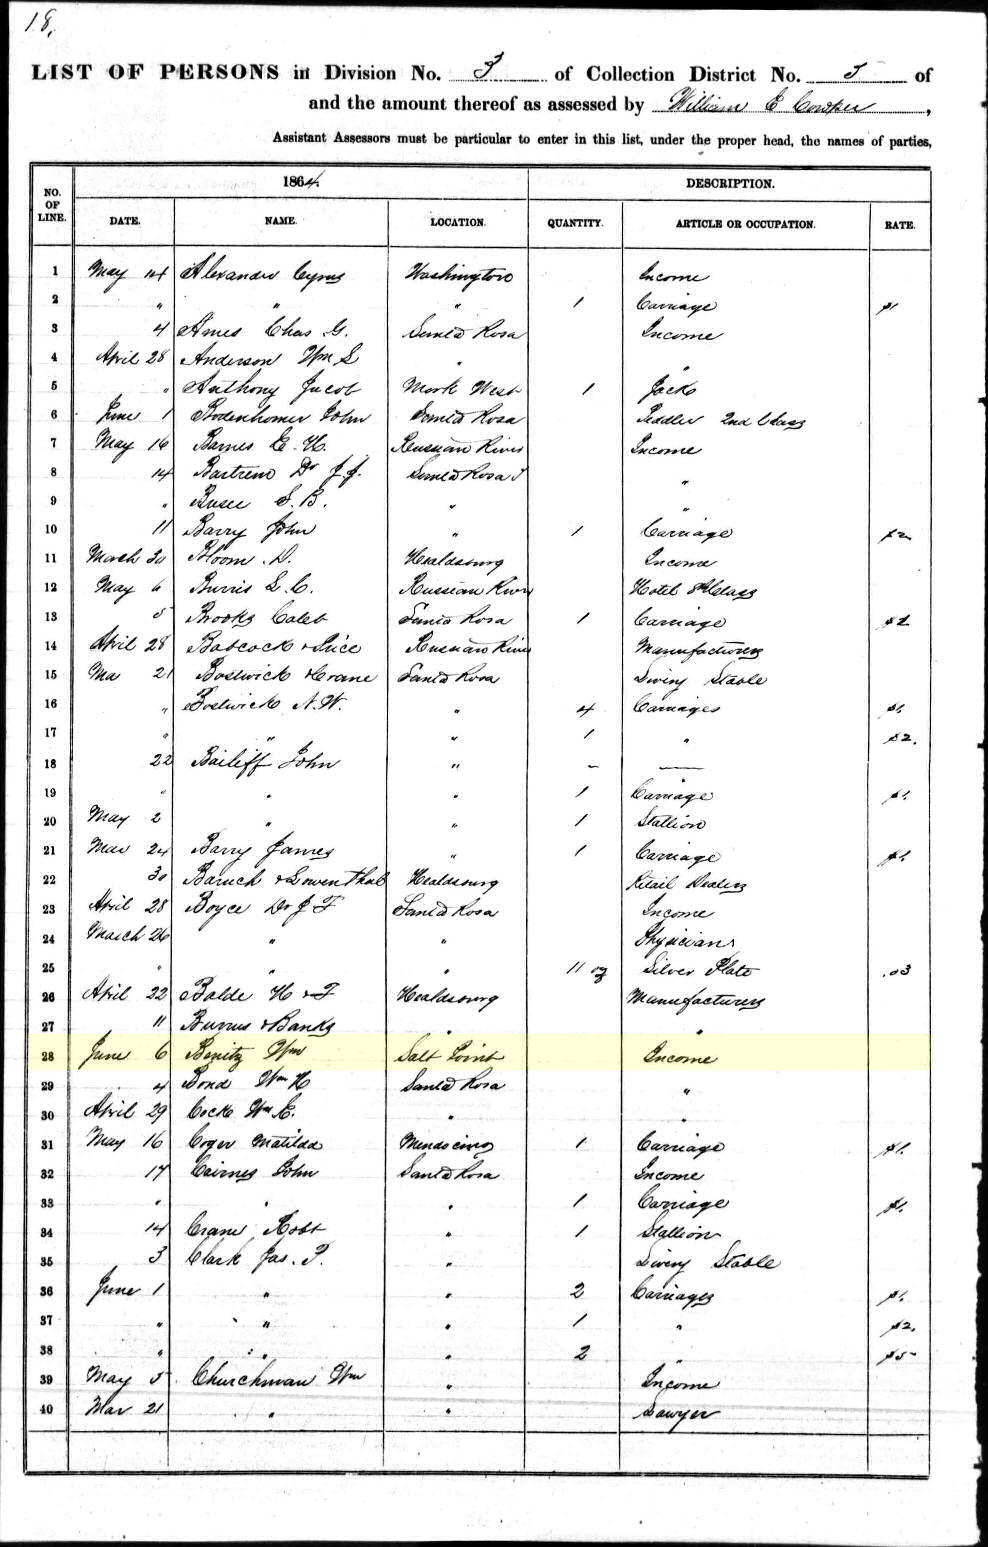 18.
LIST OF PERSONS in Division No. 3 of Collection District No. 5 of
and the amount thereof as assessed by William E Cowper,
Assistant Assessors must be particular to enter in this list, under the proper head, the names of parties,
NO. OF LINE. 1864 DESCRIPTION.
DATE. NAME. LOCATION. QUANTITY. ARTICLE OR OCCUPATION. RATE.
1 May 14 Alexander Cyrus Washington Income
2 " " " 1 Carriage $1
3 4 Ames Chas G. Santa Rosa Income
4 April 28 Anderson Wm L " "
5 " Anthony Jacob Mark West 1 Jack
6 June 1 Bodenhomer John Santa Rosa Peddler 2nd Class
7 May 16 Barnes E. H. Russian River Income
8 14 Dr J. J. Santa Rosa "
9 " S. B. " "
10 11 Barry John " 1 Carriage $2
11 March 30 Bloom D. Healdsburg Income
12 May 6 Burris L. C. Russian River Hotel 8th Class
13 5 Brooks Caleb Santa Rosa 1 Carriage $2
14 April 28 Babcock & Russian River Manufacturers
15 Ma 21 Bostwick & Crane Santa Rosa Livery Stable
16 " Bostwick N. W. " 4 Carriages $1.
17 " " " 1 " $2.
18 22 Bailiff John " – —
19 " " " 1 Carriage $1.
20 May 2 " " 1 Stallion
21 Mar 24 Barry James " 1 Carriage $1.
22 30 Baruch & Lowenthal Healdsburg Retail Dealers
23 April 28 Boyce Dr J F Santa Rosa Income
24 March 26 " " Physician
25 " " " 11 oz Silver Plate .03
26 April 22 Balde H & F Healdsburg Manufacturers
27 11 Burrus & Banks " "
28 June 6 Benitz Wm Salt Point Income
29 4 Bond Wm H Santa Rosa "
30 April 29 Cock Wm E. " "
31 May 16 Coger Matilda Mendocino 1 Carriage $1.
32 17 Cairnes John Santa Rosa Income
33 " " " 1 Carriage $1.
34 14 Crane Robt " 1 Stallion
35 3 Clark Jas. P. " Livery Stable
36 June 1 " " 2 Carriages $1.
37 " " " 1 " $2.
38 " " " 2 " $5
39 May 5 Churchman Wm " Income
40 Mar 21 " " Lawyer